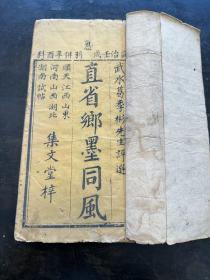 同治壬戌 別併辛酉科
武水葛季彬先生評選
直省鄉墨同風
順天江西山東
河南山西湖北
湖南試帖
集文堂梓